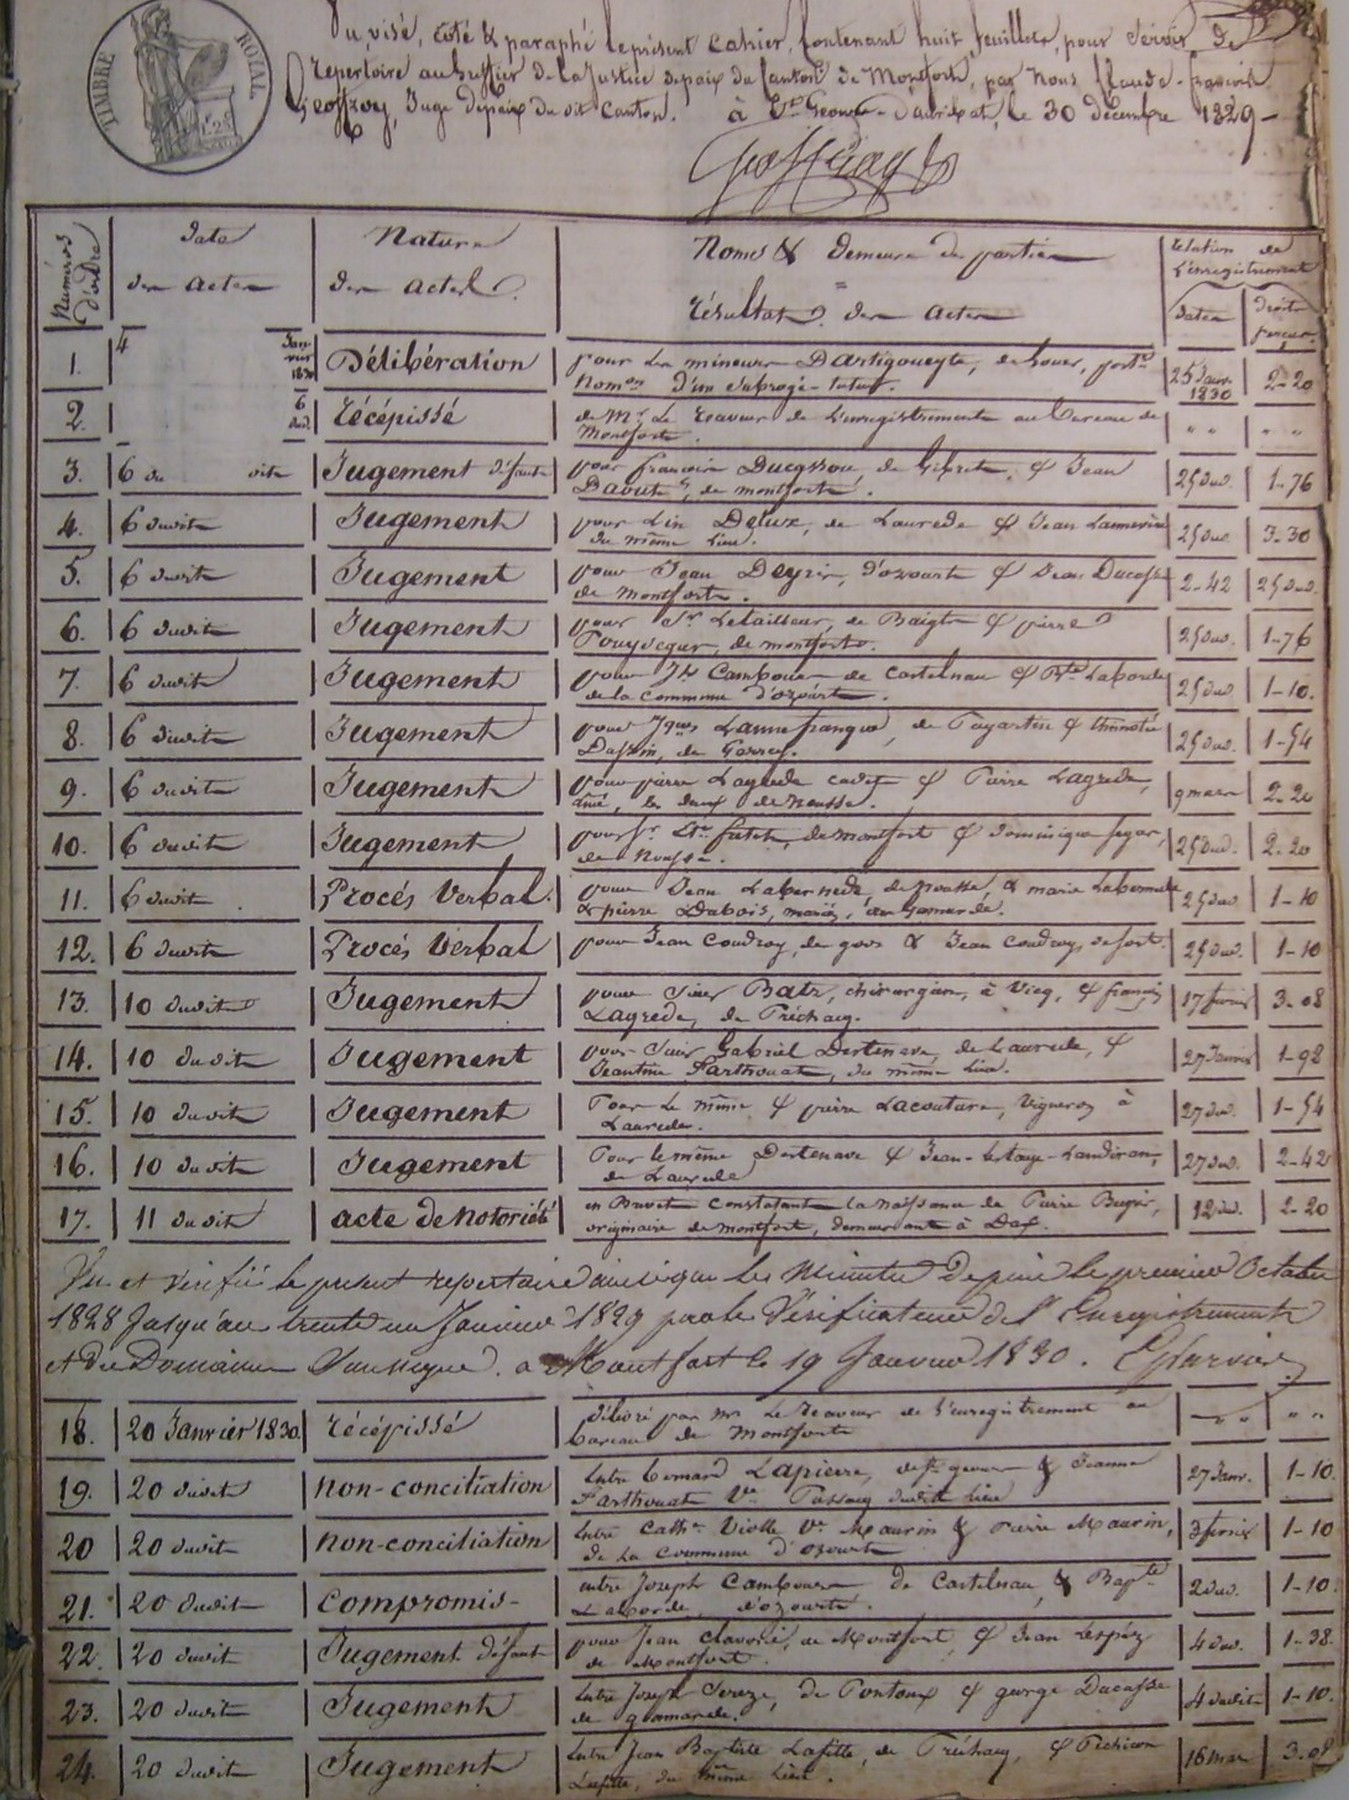 TIMBRE ROYAL
Vu, visé, coté & paraphé le présent cahier, contenant huit feuillets, pour servir de
répertoire au Greffier de la Justice de paix du Canton de Montfort, par nous Claude-françois
Geoffroy, Juge de paix du dit Canton. à St Geours-d'auribat, le 30 décembre 1829
Numéros d'ordre
Date
des actes
Nature
des actes
Noms & demeure des parties
Résultat des actes
Relation de
l'enregistrement
dates
droits
perçus
1. 4 Janvier 1830 Délibération pour les mineurs Dartigoueyte, de port
nomon d'un subrogé-tuteur. 25 Janv. 1830 2-20
2. 6 dud. Récépissé de Mr Le Receveur de l'enregistrement au bureau de
Montfort. " " " "
3. 6 du dit Jugement défaut pour françois de Gibret, & Jean
de montfort. 25 dud. 1-76
4. 6 dudit Jugement pour Lin Delux, de Laurede & Jean
du même lieu. 25 dud. 3-30
5. 6 dudit Jugement pour Jean Deyris, d'ozourt & Jean Ducasse
de Montfort. 2-42 25 dud.
6. 6 dudit Jugement pour Sr Letailleur, de Baigts & pierre
de montfort. 25 dud. 1-76
7. 6 dudit Jugement pour de castelnau & Bte Laborde
de la commune d'ozourt. 25 dud. 1-10.
8. 6 dudit Jugement pour Jques Lannefranque, de Poyartin &
de Garrey. 25 dud. 1-54
9. 6 dudit Jugement pour pierre Lagrede cadet & Pierre Lagrede,
ainé, les deux de nousse. 9 mars 2-20
10. 6 dudit Jugement pour Sr de montfort & dominique
de nousse. 25 dud. 2-20
11. 6 dudit Procés Verbal. pour Jean Labernede, & marie Labernede
& pierre Dubois, mariés, de Gamarde. 25 dud 1-10
12. 6 dudit Procés Verbal pour Jean Coudroy, de goos & Jean coudroy, 25 dud. 1-10
13. 10 dudit Jugement pour Sieur Batz, chirurgien, à Vicq, & françois
Lagrede, de Préchacq. 17 fevrier 3-08
14. 10 dudit Jugement pour Sieur Gabriel Destenave, de Laurede, &
Parthouat, du même lieu. 27 Janvier 1-98
15. 10 dudit Jugement Pour Le même & pierre Lacouture, Vigneron à
Laurede. 27 dud. 1-54
16. 10 dudit Jugement Pour le même Destenave & Jean
de Laurede 27 dud. 2-42
17. 11 dudit acte de Notoriété en Brevet constatant la naissance de Pierre
originaire de montfort, demeurant à Dax. 12 dud. 2-20
Vu et vérifié le present repertoire ainsi que les Minutes depuis le premier Octobre
1828 Jusqu'au trente un Janvier 1829 par le Vérificateur de l'Enregistrement
et des Domaines Soussigné. a Montfort le 19 Janvier 1830.
18. 20 Janvier 1830. Récépissé délivré par mr Le Receveur de l'enregistrement au
bureau de Montfort " " " "
19. 20 dudit non-conciliation Entre bernard Lapierre, de St geours & Jeanne
Parthouat Ve dudit lieu 27 Janv. 1-10.
20 20 dudit non-conciliation Entre Cathne Violle Ve Maurin & Pierre Maurin,
de La Commune d'ozourt 3 fevrier 1-10
21. 20 dudit Compromis- entre Joseph de Castelnau, & Bapte
Laborde, d'ozourt. 2 dud. 1-10
22. 20 dudit Jugement défaut pour Jean Clavorie, de Montfort, & Jean Lespéz
de Montfort. 4 dud. 1-38.
23. 20 dudit Jugement Entre Joseph Sereze, de Pontonx & george Ducasse
de gamarde. 4 dudit 1-10.
24. 20 dudit Jugement Entre Jean Baptiste Lafitte, de Préchacq, &
Lafitte, du même Lieu. 16 mars 3-08